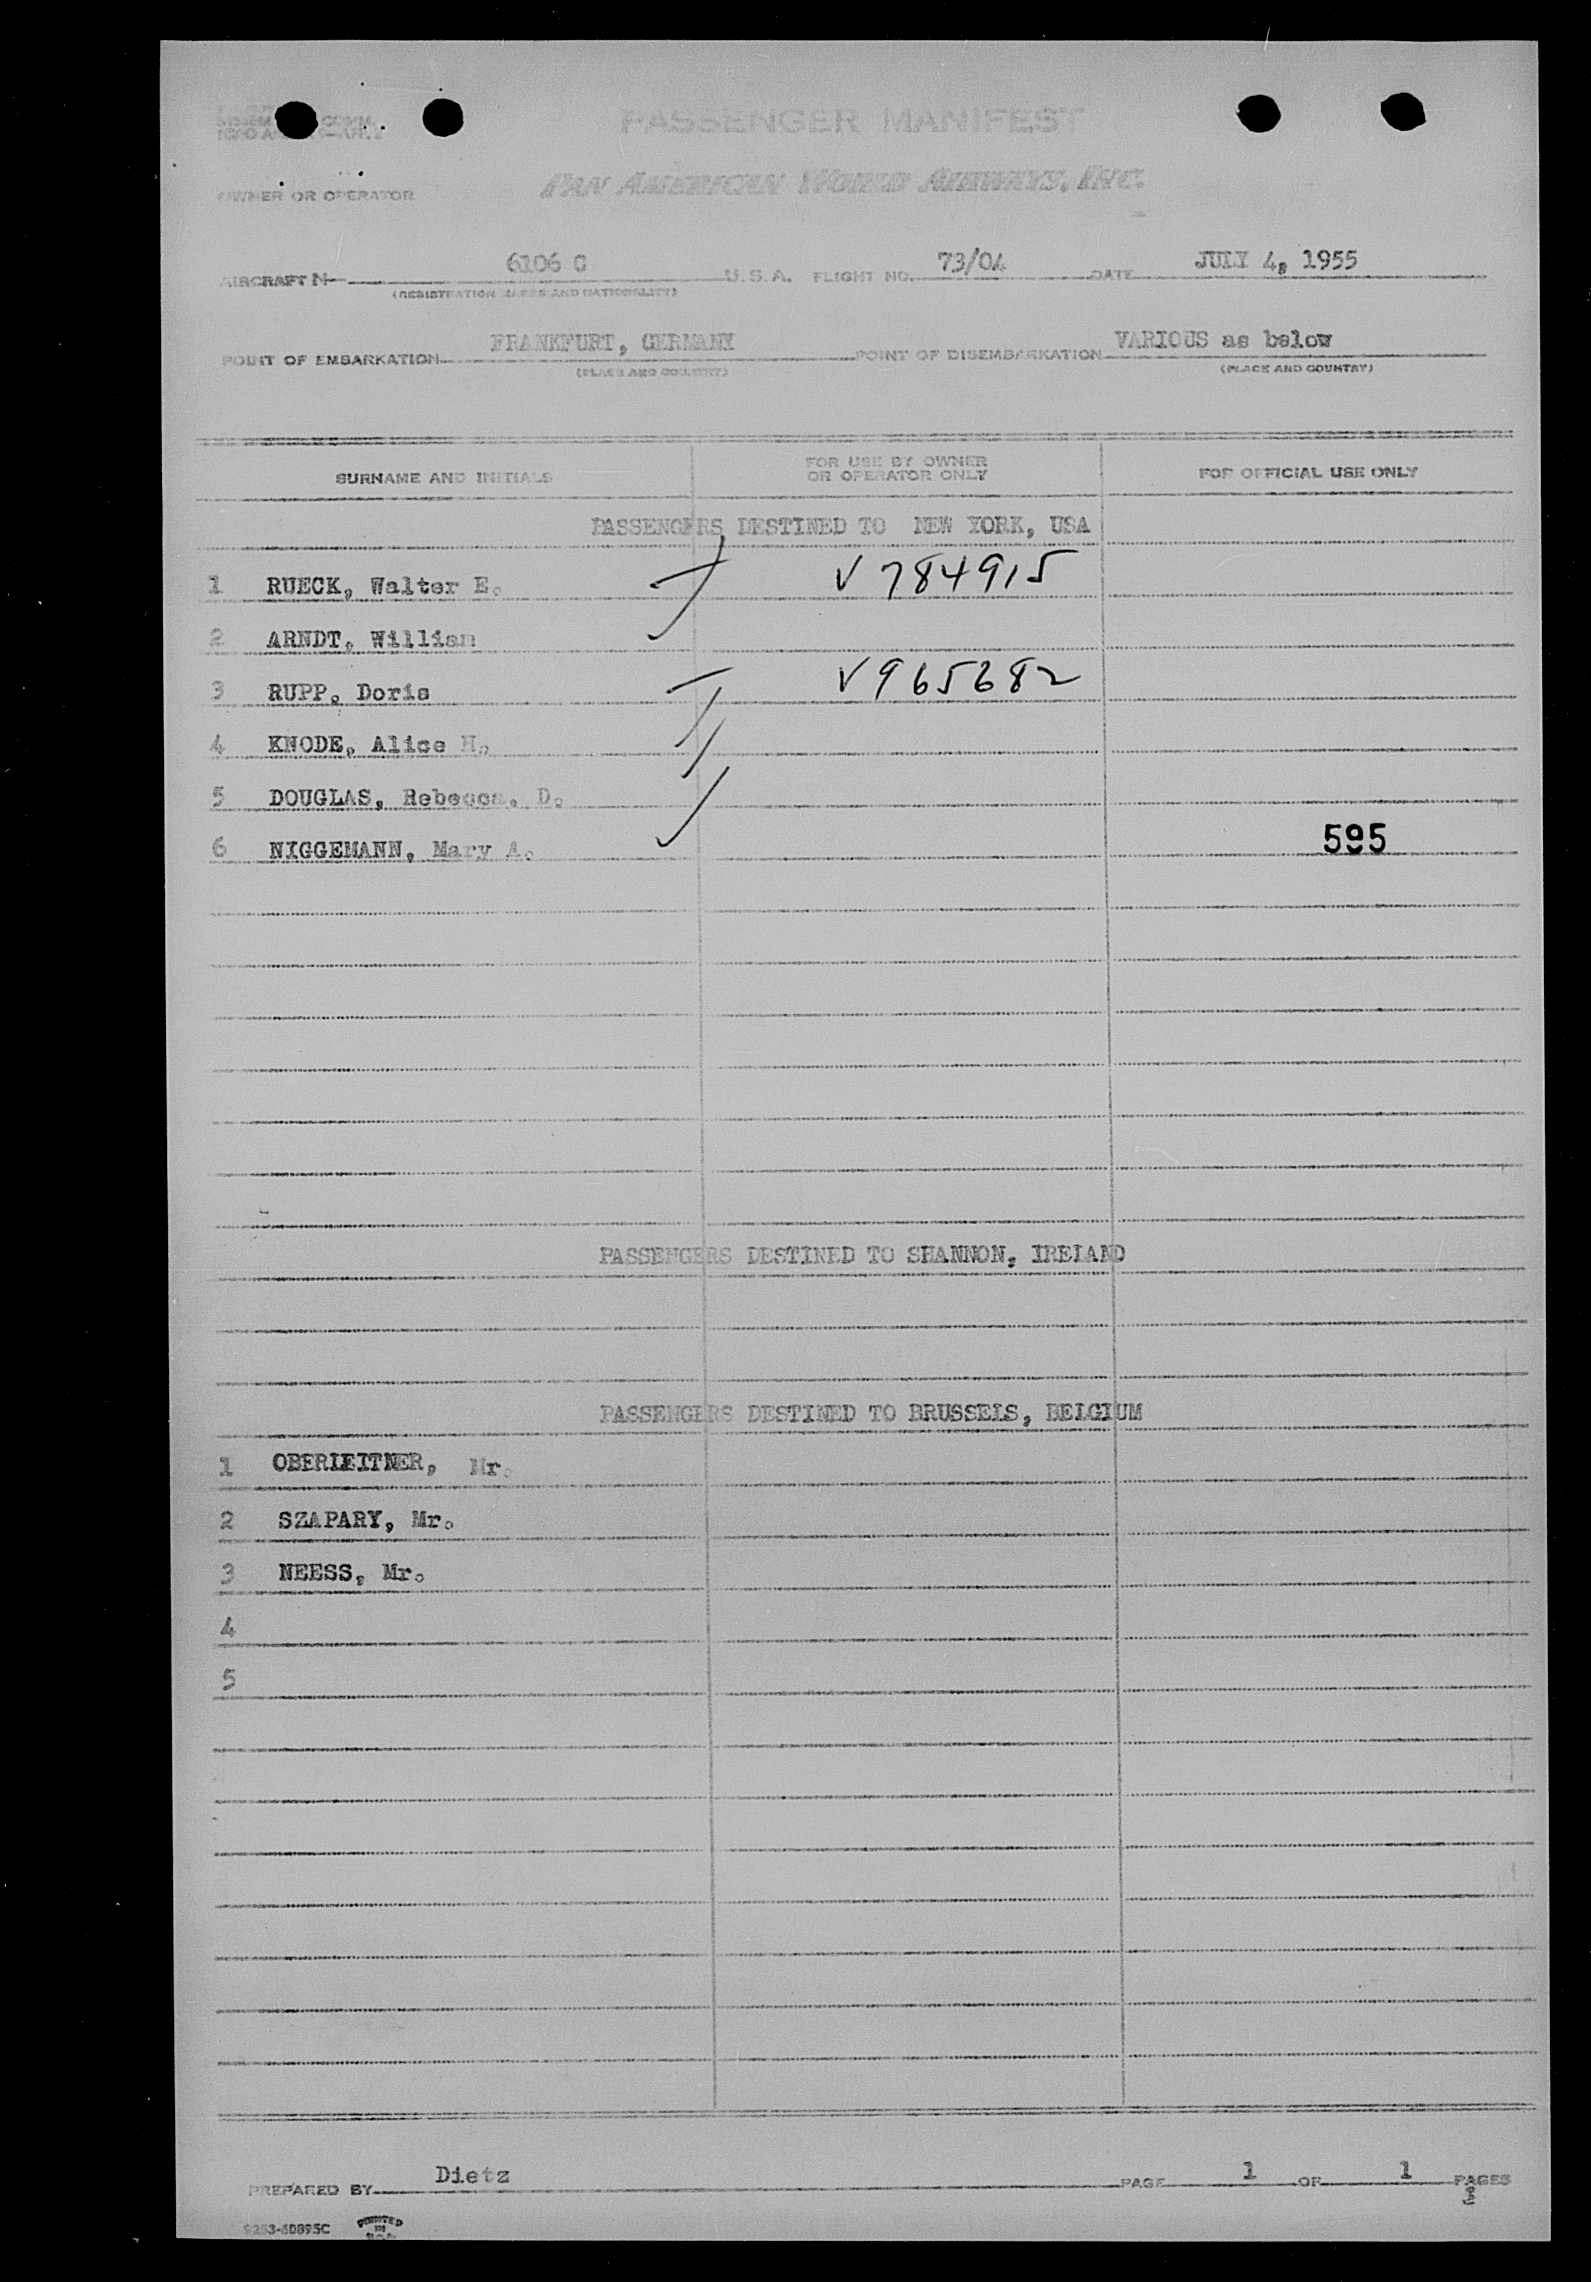 PASSENGER MANIFEST
OWNER OR OPERATOR PAN AMERICAN WORLD AIRWAYS, INC.
AIRCRAFT N 6106 C U.S.A. FLIGHT NO. 73/04 DATE JULY 4, 1955
(REGISTRATION MARKS AND NATIONALITY)
POINT OF EMBARKATION FRANKFURT, GERMANY POINT OF DISEMBARKATION VARIOUS as below
(PLACE AND COUNTRY) (PLACE AND COUNTRY)
SURNAME AND INITIALS FOR USE BY OWNER OR OPERATOR ONLY FOR OFFICIAL USE ONLY
PASSENGERS DESTINED TO NEW YORK, USA
1 RUECK, Walter E. V784915
2 ARNDT, William
3 RUPP, Doris V965682
4 KNODE, Alice H.
5 DOUGLAS, Rebecca, D.
6 NIGGEMANN, Mary A. 595
PASSENGERS DESTINED TO SHANNON, IRELAND
PASSENGERS DESTINED TO BRUSSELS, BELGIUM
1 OBERLEITNER, Mr.
2 SZAPARY, Mr.
3 NEESS, Mr.
4
5
PREPARED BY Dietz PAGE 1 OF 1 PAGES
9253-60895C PRINTED IN